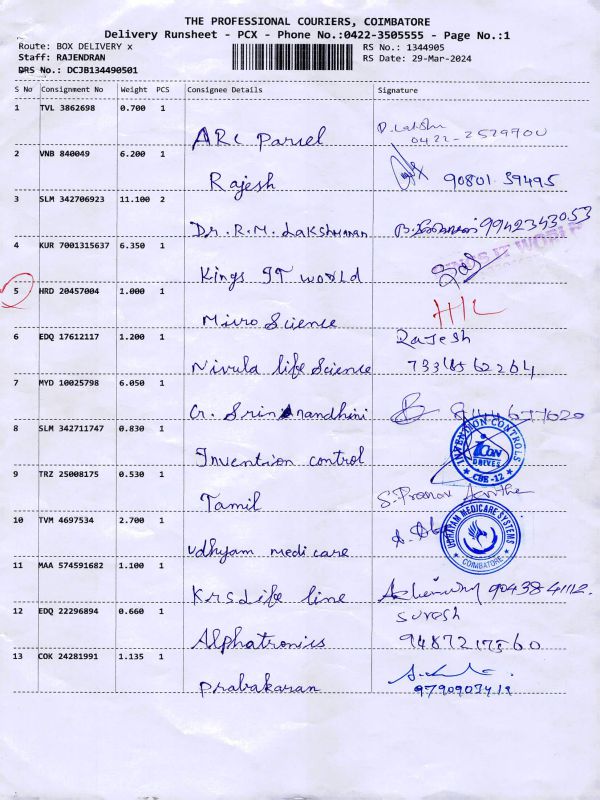 THE PROFESSIONAL COURIERS, COIMBATORE
Delivery Runsheet - PCX - Phone No.:0422-3505555 - Page No.:1
Route: BOX DELIVERY x RS No.: 1344905
Staff: RAJENDRAN RS Date: 29-Mar-2024
DRS No.: DCJB134490501
S No Consignment No Weight PCS Consignee Details Signature
1 TVL 3862698 0.700 1
ARC Parcel
2 VNB 840049 6.200 1
Rajesh 90801 59495
3 SLM 342706923 11.100 2
Dr. R.M. Lakshmanan 9942343053
4 KUR 7001315637 6.350 1
Kings IT world
5 HRD 20457004 1.000 1
Micro Science
6 EDQ 17612117 1.200 1 Rajesh
Nivula life Science
7 MYD 10025798 6.050 1
8 SLM 342711747 0.830 1
Invention control
INVENTION CONTROLS
ICON
DRIVES
CBE-12
9 TRZ 25008175 0.530 1
Tamil
10 TVM 4697534 2.700 1
Udhyam medicare
UDHAYAM MEDICARE SYSTEMS
COIMBATORE
11 MAA 574591682 1.100 1
Krs Life line 90438-41112.
12 EDQ 22296894 0.660 1 Suresh
Alphatronics
13 COK 24281991 1.135 1
Prabakaran